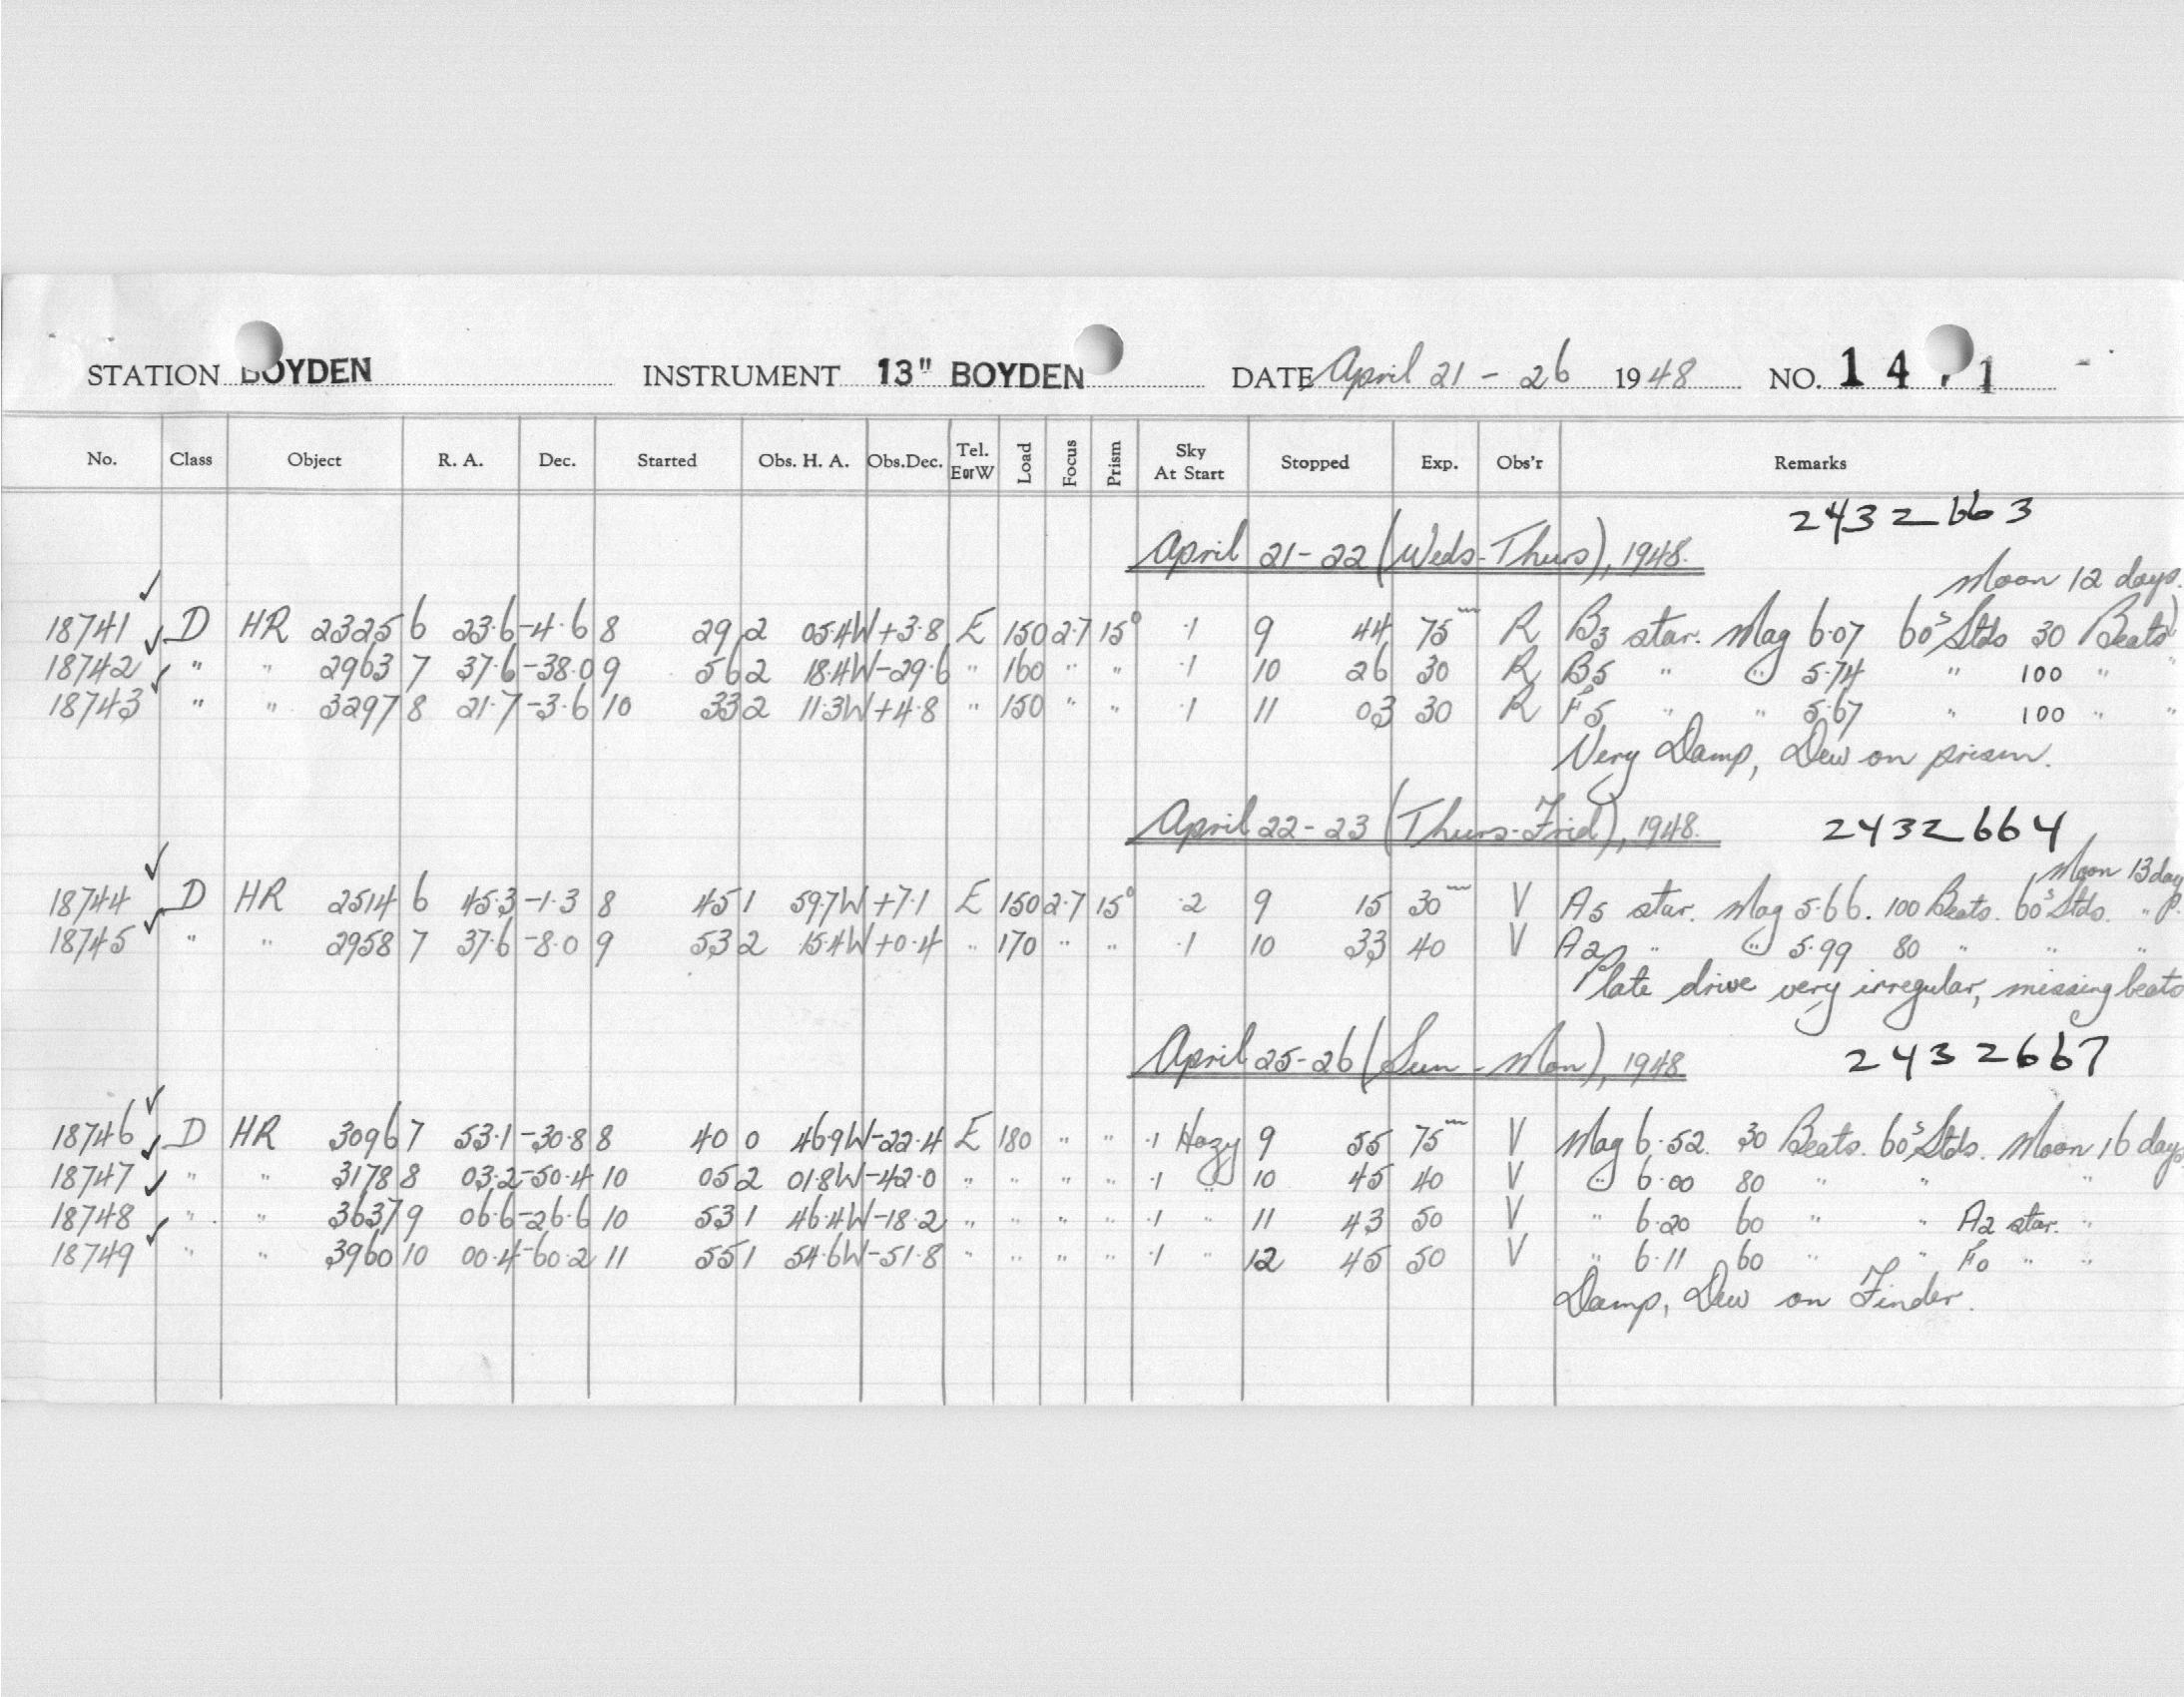 STATION BOYDEN INSTRUMENT 13" BOYDEN DATE April 21 - 26 1948 NO. 14 1
No. Class Object R. A. Dec. Started Obs. H. A. Obs.Dec. Tel. E or W Load Focus Prism Sky At Start Stopped Exp. Obs'r Remarks
2432663
April 21-22 (Weds-Thurs), 1948.
Moon 12 days.
18741 ✓ D HR 2325 6 23.6 -4.6 8 29 2 05.4W +3.8 E 150 2.7 15° .1 9 44 75m R B3 star. Mag 6.07 60s Stds 30 Beats
18742 ✓ " " 2963 7 37.6 -38.0 9 56 2 18.4W -29.6 " 160 " " .1 10 26 30 R B5 " " 5.74 " 100 " "
18743 ✓ " " 3297 8 21.7 -3.6 10 33 2 11.3W +4.8 " 150 " " .1 11 03 30 R F5 " " 5.67 " 100 " "
Very Damp, Dew on prism.
April 22-23 (Thurs-Frid), 1948. 2432664
Moon 13 day
18744 ✓ D HR 2514 6 45.3 -1.3 8 45 1 59.7W +7.1 E 150 2.7 15° .2 9 15 30m V A5 star. Mag 5.66. 100 Beats. 60s Stds. "
18745 ✓ " " 2958 7 37.6 -8.0 9 53 2 15.4W +0.4 " 170 " " .1 10 33 40 V A2 " " 5.99 80 " " "
Plate drive very irregular, missing beats
April 25-26 (Sun - Mon), 1948 2432667
18746 ✓ D HR 3096 7 53.1 -30.8 8 40 0 46.9W -22.4 E 180 " " .1 Hazy 9 55 75m V Mag 6.52. 30 Beats. 60s Stds. Moon 16 days
18747 ✓ " " 3178 8 03.2 -50.4 10 05 2 01.8W -42.0 " " " " .1 " 10 45 40 V " 6.00 80 " " "
18748 ✓ " " 3637 9 06.6 -26.6 10 53 1 46.4W -18.2 " " " " .1 " 11 43 50 V " 6.20 60 " " A2 star. "
18749 ✓ " " 3960 10 00.4 -60.2 11 55 1 54.6W -51.8 " " " " .1 " 12 45 50 V " 6.11 60 " " F0 " "
Damp, Dew on Finder.